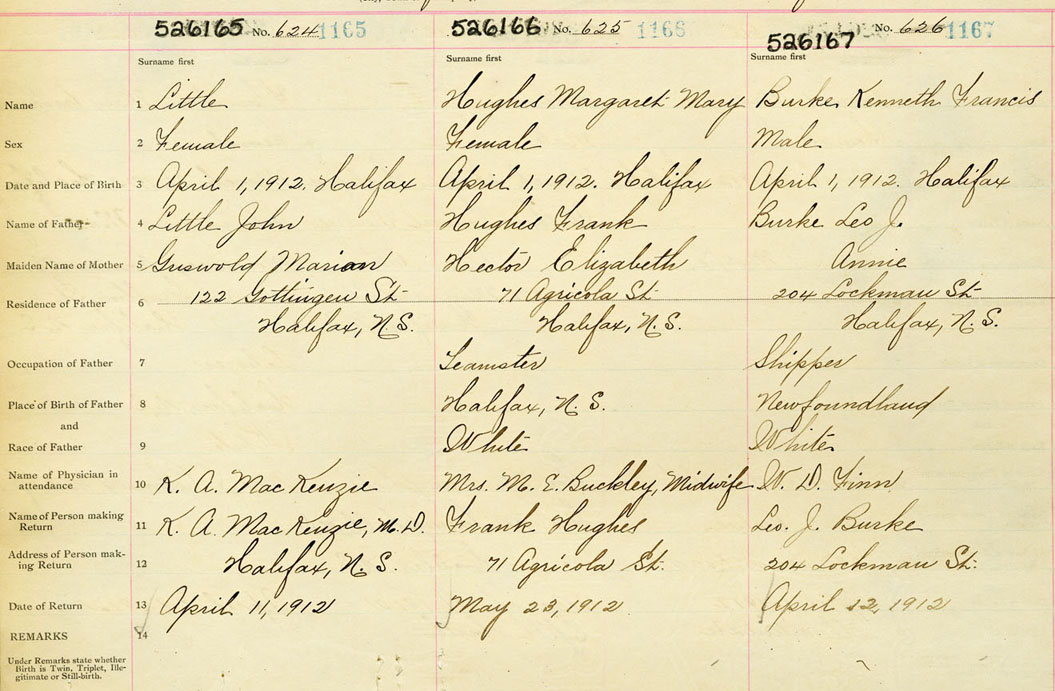 526165 No. 624 1165
526166 No. 625 1166
526167 No. 626 1167
Surname first Surname first Surname first
Name 1 Little Hughes Margaret Mary Burke Kenneth Francis
Sex 2 Female Female Male
Date and Place of Birth 3 April 1, 1912. Halifax April 1, 1912. Halifax April 1, 1912. Halifax
Name of Father 4 Little John Hughes Frank Burke Leo J.
Maiden Name of Mother 5 Griswold Marian Hector Elizabeth Annie
Residence of Father 6 122 Gottingen St 71 Agricola St 204 Lockman St
Halifax, N.S. Halifax, N.S. Halifax, N.S.
Occupation of Father 7 Teamster Shipper
Place of Birth of Father 8 Halifax, N.S. Newfoundland
and
Race of Father 9 White White
Name of Physician in
attendance 10 K. A. MacKenzie Mrs. M. E. Buckley, Midwife W. D. Finn
Name of Person making
Return 11 K. A. MacKenzie, M.D. Frank Hughes Leo. J. Burke
Address of Person mak-
ing Return 12 Halifax, N.S. 71 Agricola St. 204 Lockman St.
Date of Return 13 April 11, 1912 May 23, 1912 April 12, 1912
REMARKS 14
Under Remarks state whether
Birth is Twin, Triplet, Ille-
gitimate or Still-birth.